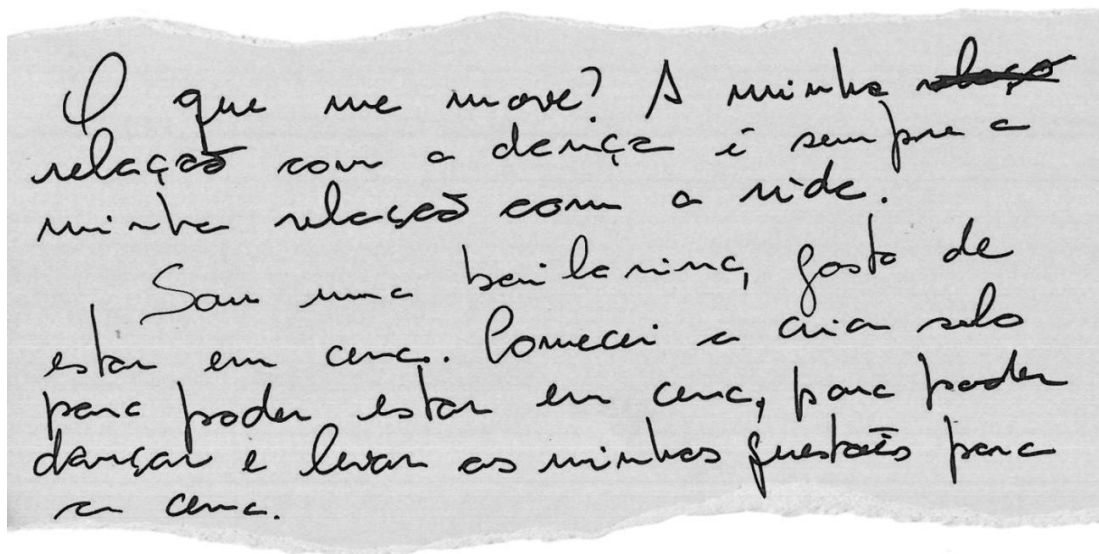 O que me move? A minha
relação com a dança é sempre a
minha relação com a vida.
Sou uma bailarina, gosto de
estar em cena. Comecei a criar solo
para poder estar em cena, para poder
dançar e levar as minhas questões para
a cena.